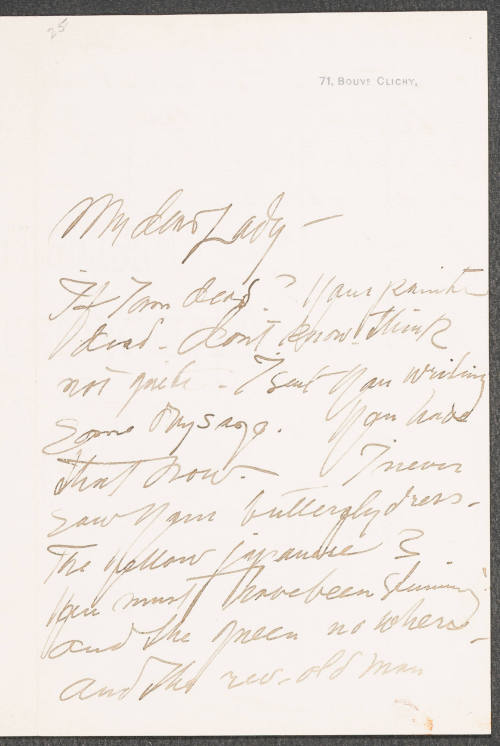 25
71, BOUVD CLICHY,
My dear Lady —
If I am dead? Your painter
dead - don't know - think
not quite - I sent you writing
some days ago. You have
that now - I never
saw your butterfly dress -
The yellow japanese 3
You must have been stunning
and the green no where -
and the rev. old man